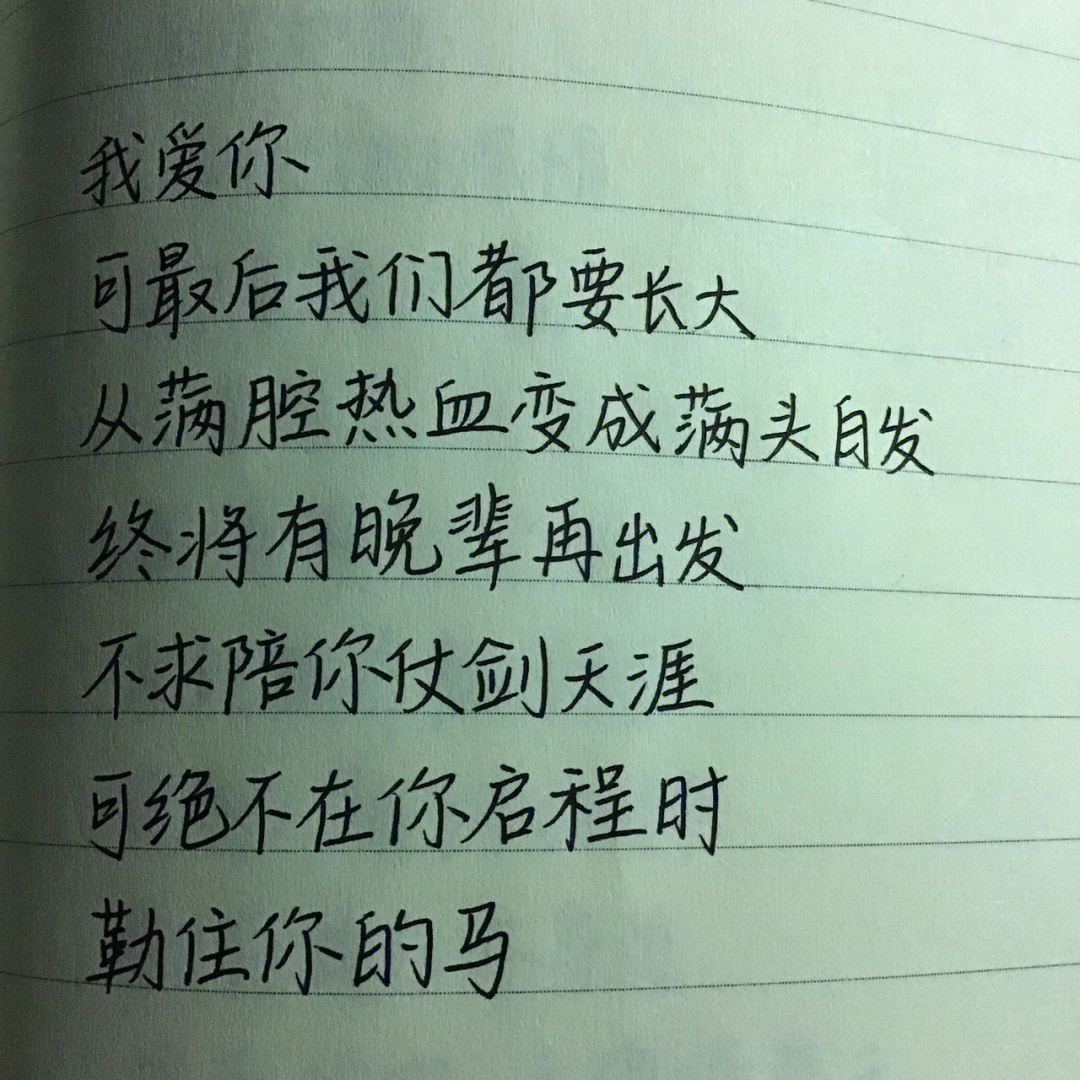 我爱你
可最后我们都要长大
从满腔热血变成满头白发
终将有晚辈再出发
不求陪你仗剑天涯
可绝不在你启程时
勒住你的马